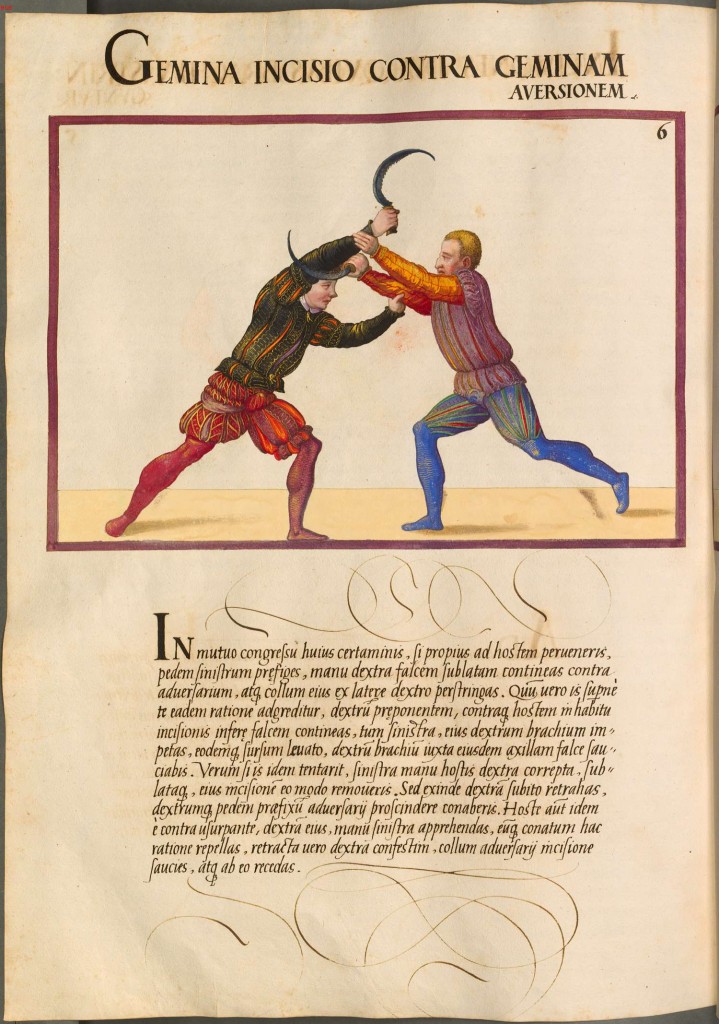 GEMINA INCISIO CONTRA GEMINAM
AVERSIONEM.
6
IN mutuo congressu huius certaminis, si propius ad hostem perueneris,
pedem sinistrum prefiges, manu dextra falcem sublatam contineas contra
aduersarium, atq collum eius ex latere dextro perstringas. Quũ uero is supnè
te eadem ratione adgreditur, dextrũ preponentem, contraq hostem in habitu
incisionis infere falcem contineas, tum sinistra, eius dextrum brachium im=
petas, eodemq sursum leuato, dextrũ brachiũ iuxta eiusdem axillam falce sau=
ciabis. Verum si is idem tentarit, sinistra manu hostis dextra correpta, sub=
lataq, eius incisione eo modo remoueris. Sed exinde dextrã subito retrahas,
dextrumq pedem præfixũ aduersarij proscindere conaberis. Hoste aũt idem
è contra usurpante, dextrã eius, manu sinistra apprehendas, eũq conatum hac
ratione repellas, retracta uero dextra confestim, collum aduersarij incisione
saucies, atq ab eo recedas.